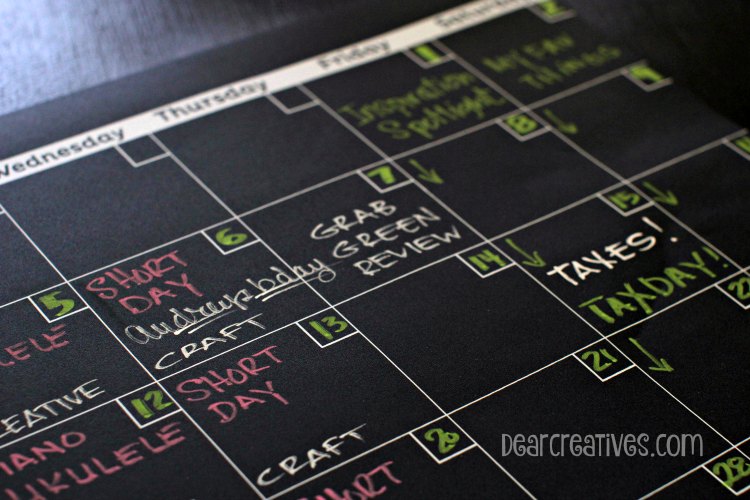 Wednesday Thursday Friday Saturday
1
2
Inspiration
Spotlight
MY FAV
THINGS
5
LELE
EATIVE
6
SHORT
DAY
audreys bday
CRAFT
7
GRAB
GREEN
REVIEW
8
9
12
IANO
UKULELE
13
SHORT
DAY
CRAFT
14
15
TAXES!
TAXDAY!
20
SHORT
21
22
28
DEARCREATIVES.COM